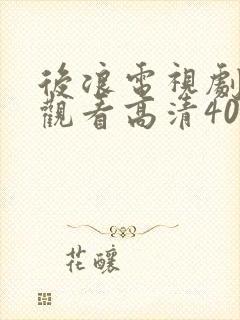 後浪電視劇
觀看高清40
花釀